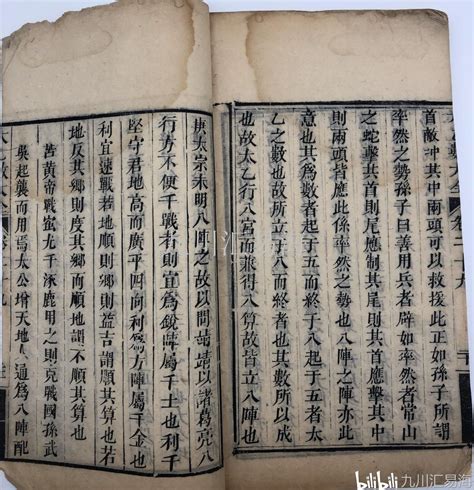 數大全 卷二十九
首敵冲其中兩頭可以救援此正如孫子所謂
率然之勢孫子曰善用兵者辟如率然者常山
之蛇擊其首則尾應制其尾其首應擊其中
則兩頭指應此率然也八陣之亦
意也其為數者起于五而終于八起于五者太
乙之數也故所立于八而終者也
也故太乙行八宮而兼得八算故皆立八陣也
唐太宗未明八陣之故以問靖靖以諸葛亮八
行方不便千戰者則宜為鏡陣屬千土也利千
堅守君地高而廣平四向利為方陣屬千金也
利宜速戰若地順則順益吉謂順其算也若
地反其鄉則度其鄉而順地謂不順其算也
苦黃帝戰蚩尤千涿鹿用之則克戰國孫武
吳起襲而用為太公增天地通為八陣配
太乙數大全
bilibili 九川汇易海
九川汇易海